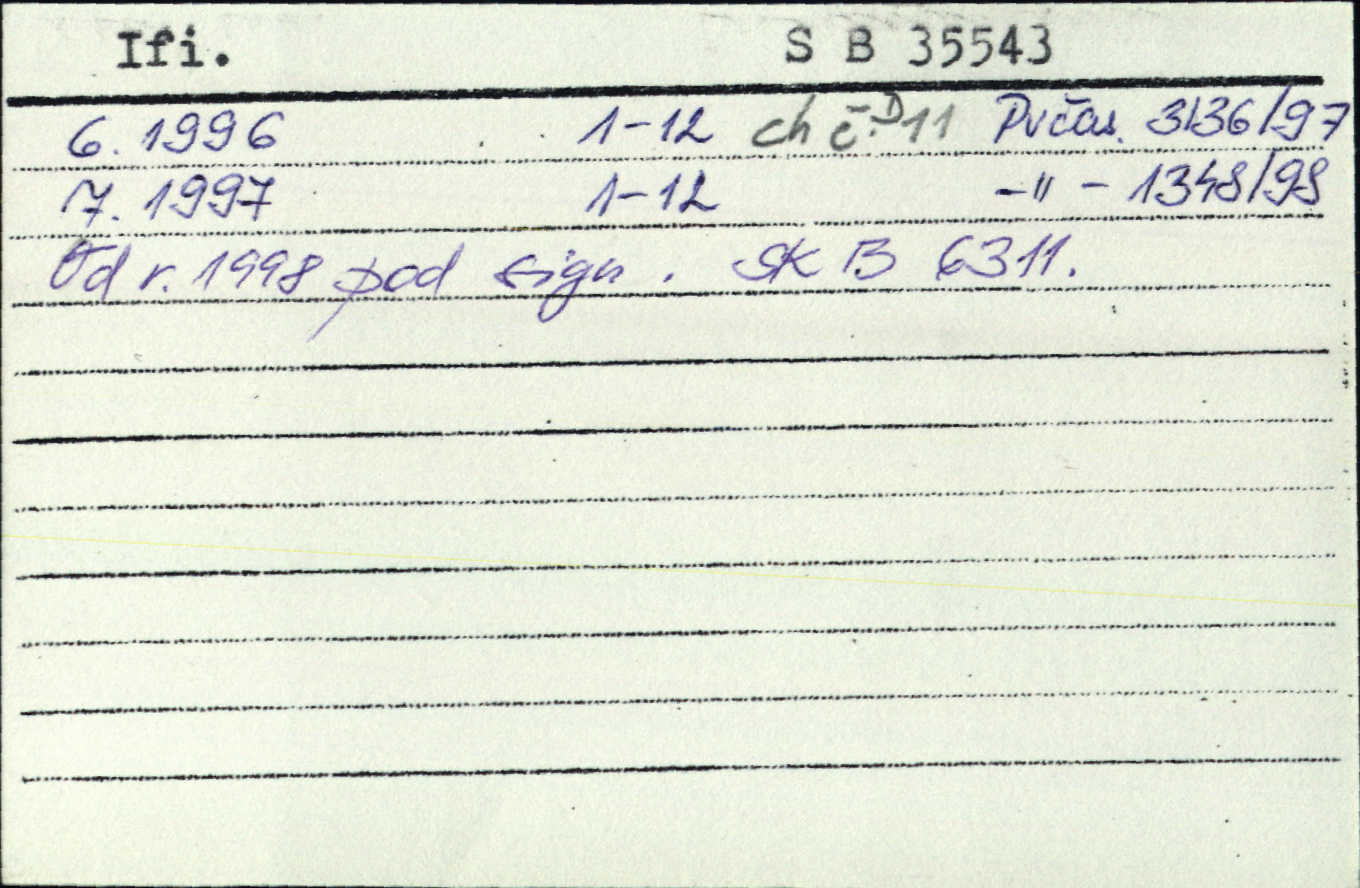 Ifi. S B 35543
6. 1996 1-12 ch č. D 11 Pvčas. 3136/97
7. 1997 1-12 -"- 1348/98
Od r. 1998 pod sign. SK B 6311.